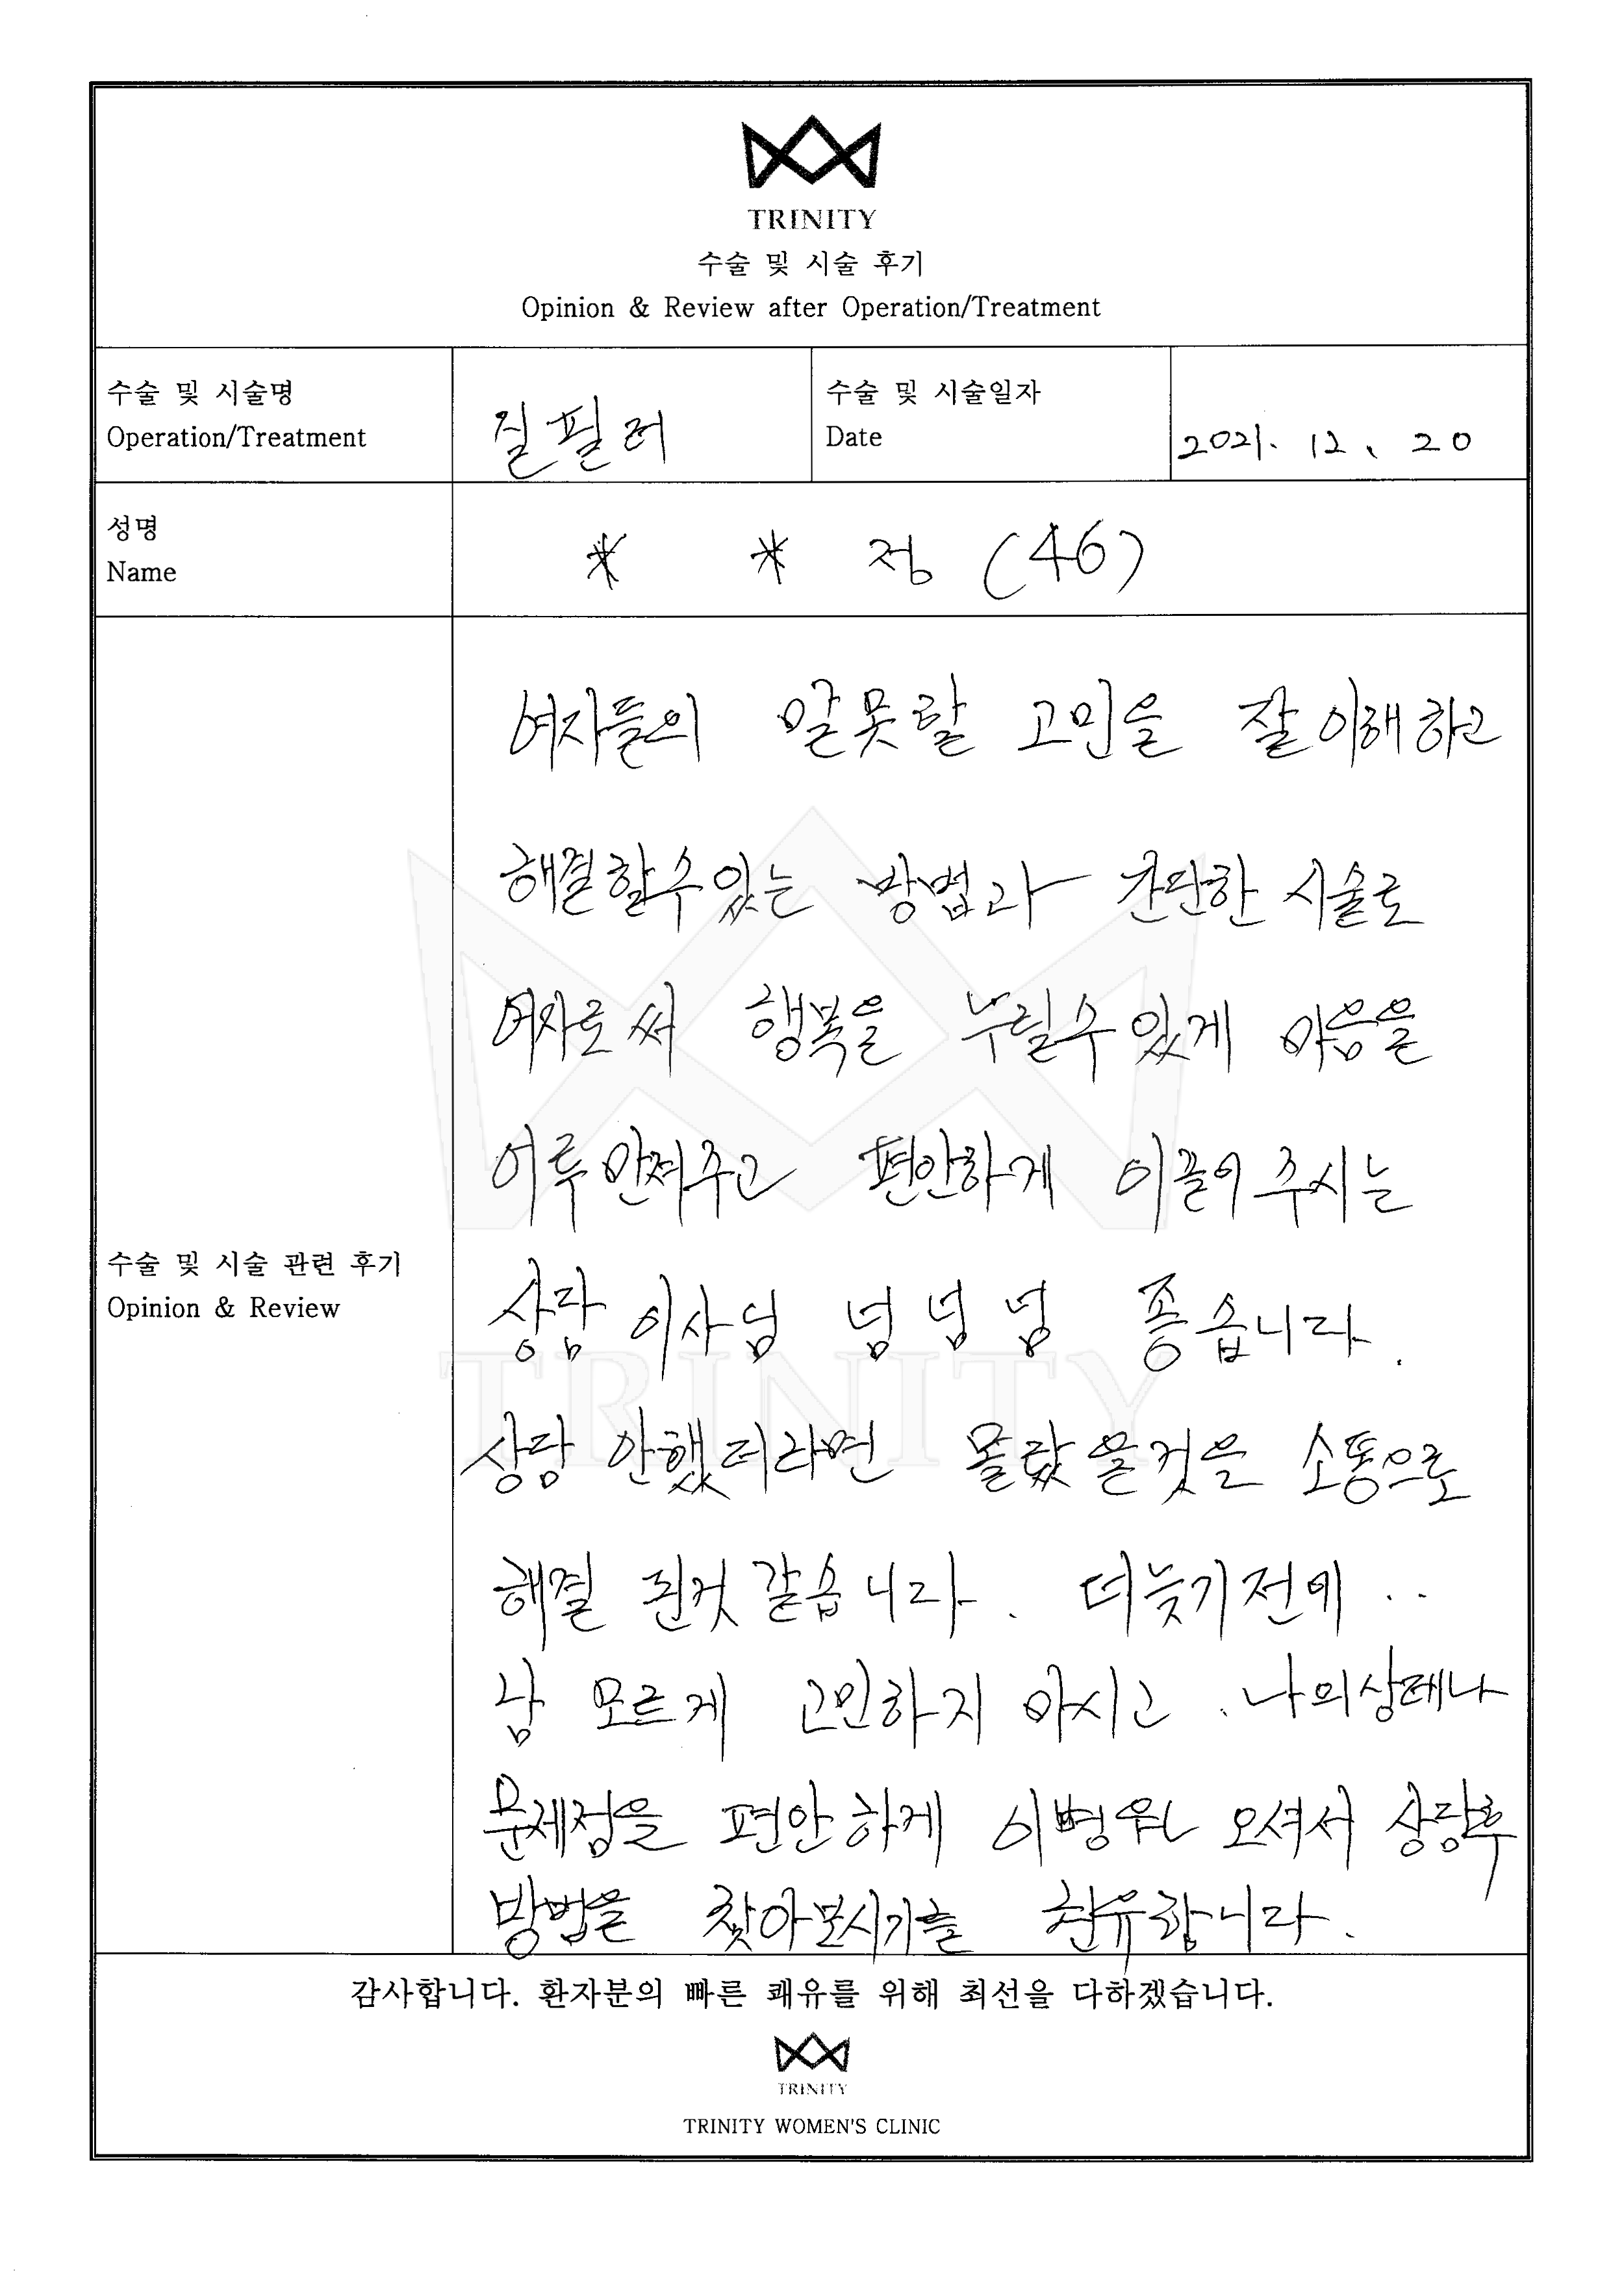 TRINITY
수술 및 시술 후기
Opinion & Review after Operation/Treatment
수술 및 시술명
Operation/Treatment
질필러
수술 및 시술일자
Date
2021. 12. 20
성명
Name
* * 정 (46)
여자들의 말못할 고민을 잘 이해하고
해결할수있는 방법과 간단한 시술로
여자로써 행복을 누릴수있게 마음을
어루만져주고 편안하게 이끌어주시는
상담 이사님 넘넘넘 좋습니다.
상담 안했더라면 몰랐을것을 소통으로
해결 된것 같습니다. 더늦기전에 ..
남 모르게 고민하지 마시고. 나의상태나
문제점을 편안하게 이병원 오셔서 상담후
방법을 찾아보시기를 권유합니다.
수술 및 시술 관련 후기
Opinion & Review
TRINITY
감사합니다. 환자분의 빠른 쾌유를 위해 최선을 다하겠습니다.
TRINITY
TRINITY WOMEN'S CLINIC